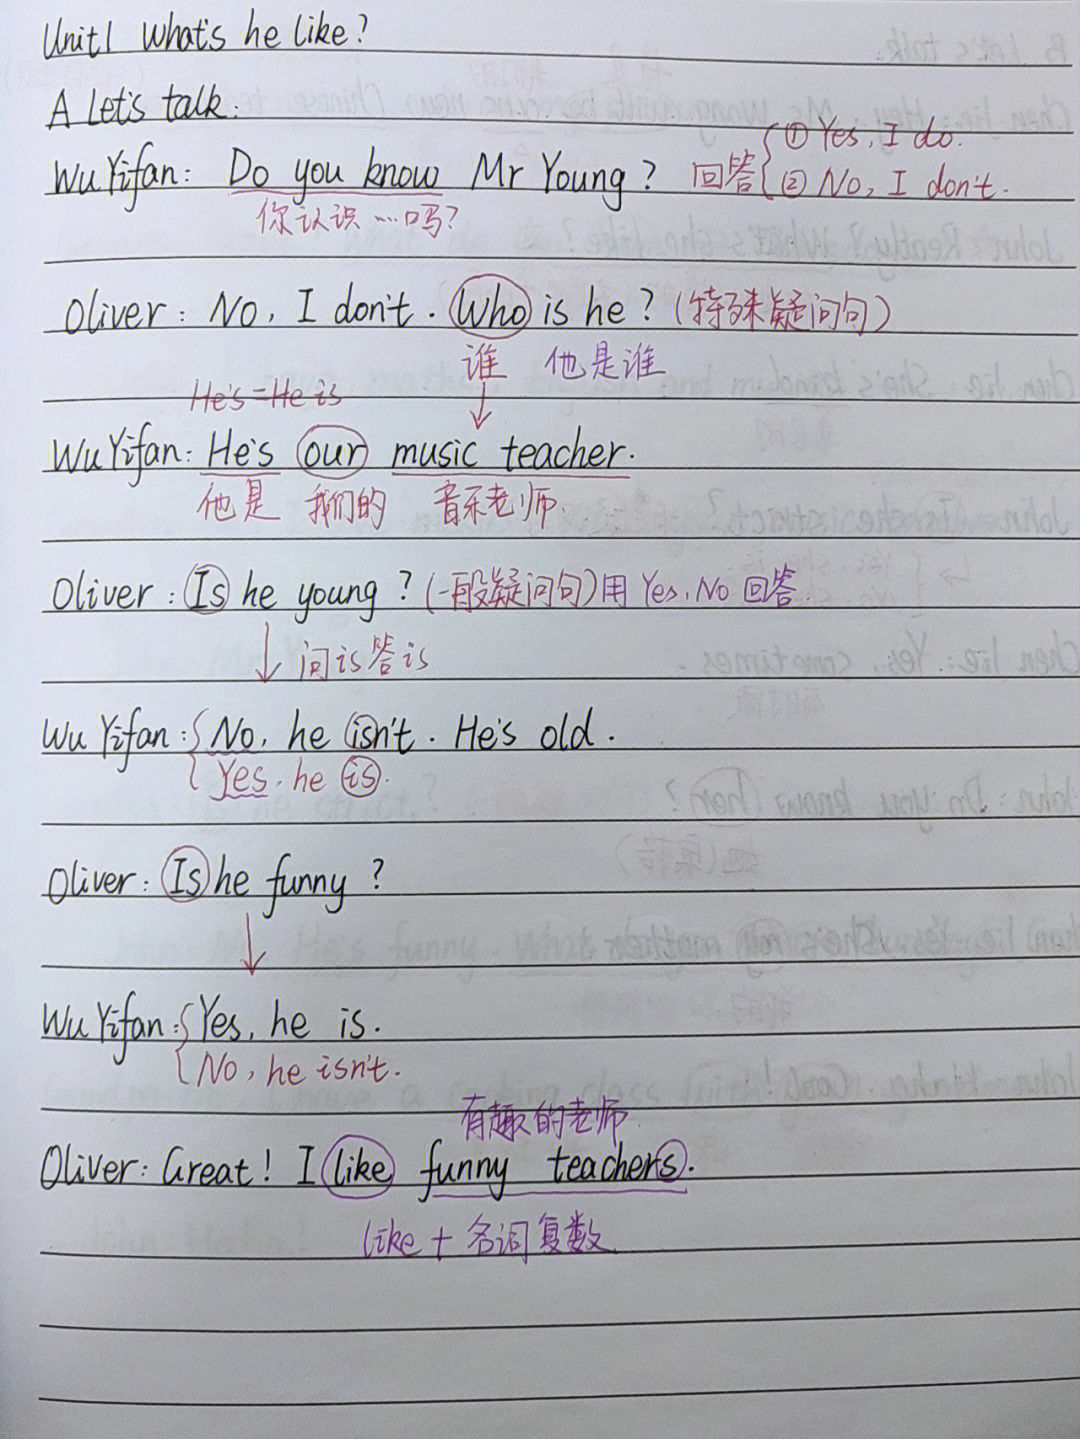 Unit1 What's he like?
A Let's talk:
① Yes, I do.
Wu Yifan: Do you know Mr Young? 回答 ② No, I don't.
你认识…吗?
Oliver: No, I don't. Who is he? (特殊疑问句)
谁 他是谁
He's=He is
Wu Yifan: He's our music teacher.
他是 我们的 音乐老师.
Oliver: Is he young? (一般疑问句)用 Yes, No 回答.
↓ 问is答is
Wu Yifan: No, he isn't. He's old.
Yes, he is.
Oliver: Is he funny?
Wu Yifan: Yes, he is.
No, he isn't.
有趣的老师.
Oliver: Great! I like funny teachers.
like + 名词复数.